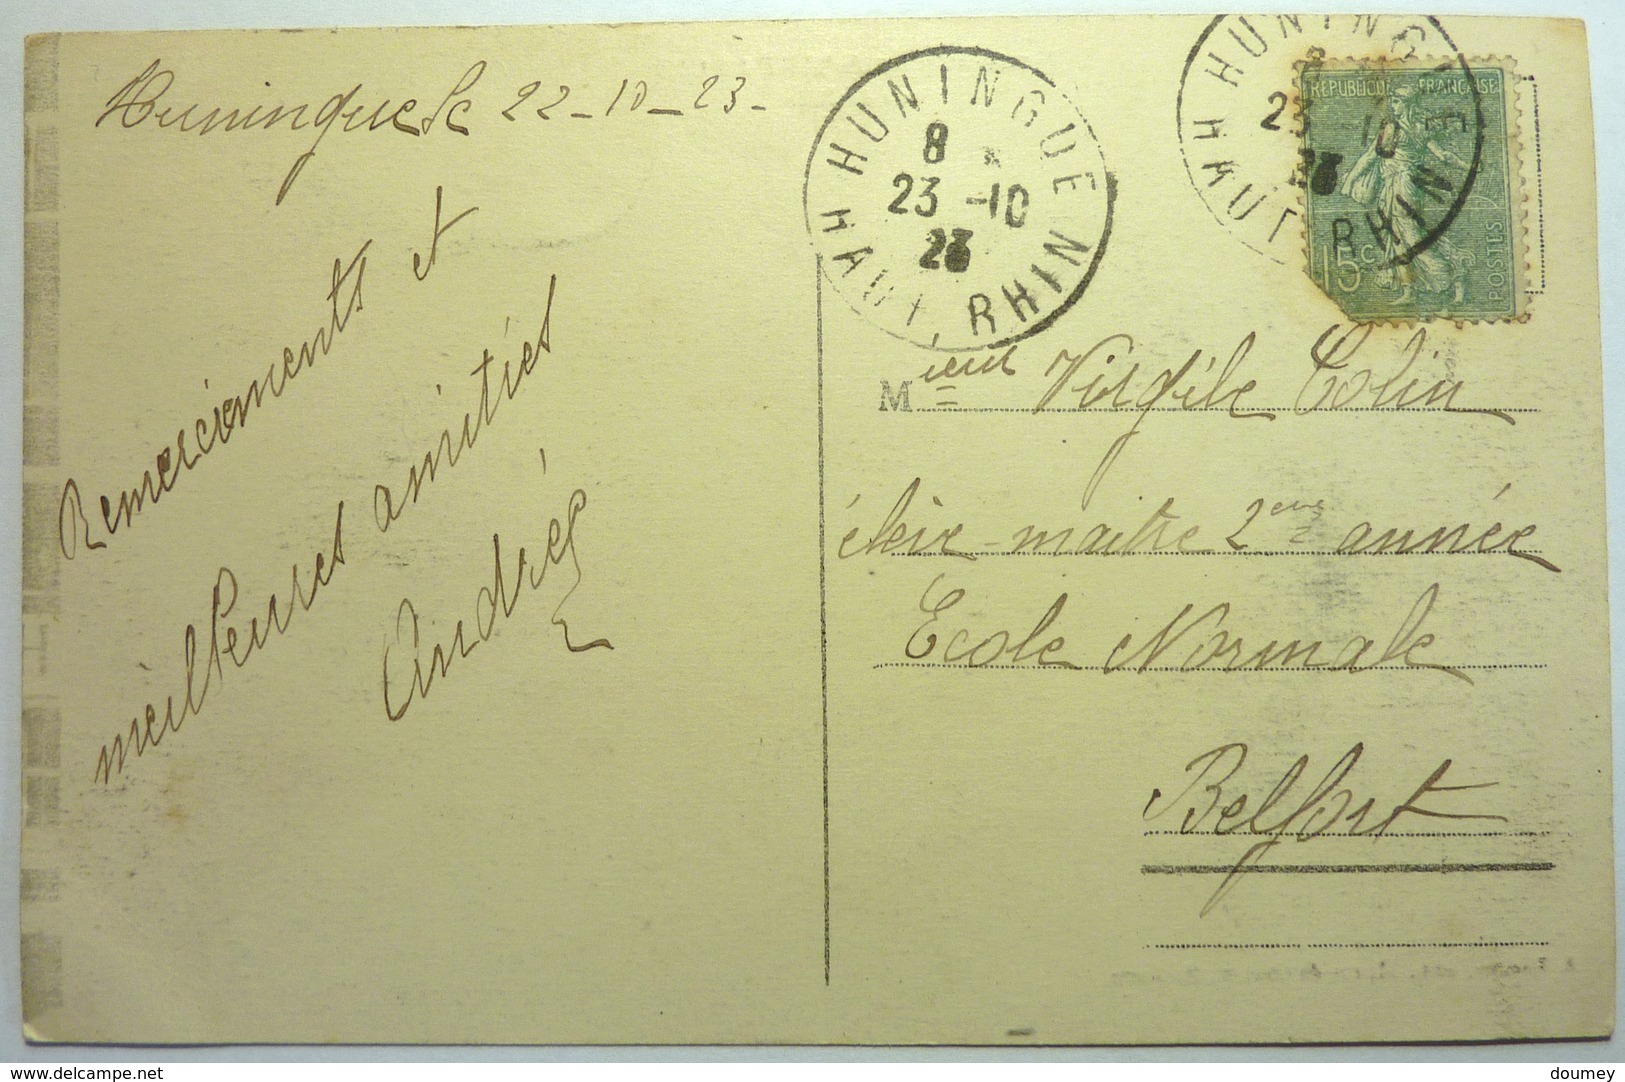 Huningue le 22-10-23-
Remerciements et
meilleures amitiés
André
HUNINGUE
8
23 -10
23
HAUT RHIN
HUNINGUE
8
23 -10
23
HAUT RHIN
REPUBLIQUE FRANÇAISE
15c
POSTES
Mieur Virgile Colin
élève-maitre 2eme année
Ecole Normale
Belfort
www.delcampe.net
doumey